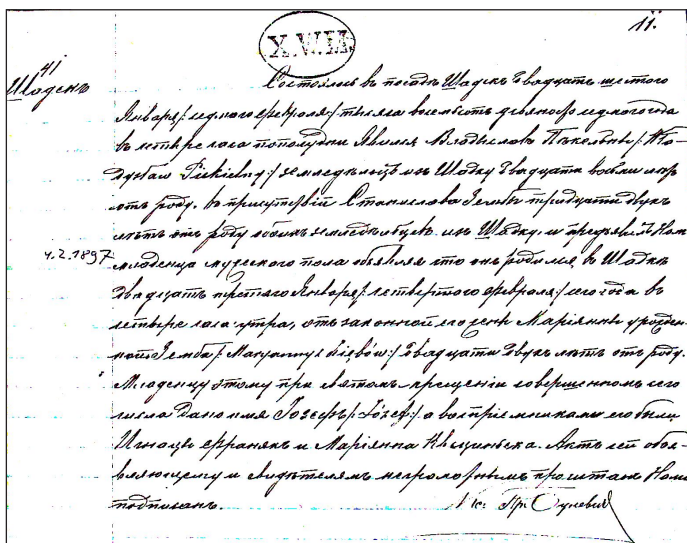 11.
X.W.H.
41
Шадекъ
Состоялось въ посадѣ Шадекъ двадцать шестого
Января /:седмого февраля:/ тысяча восемьсотъ девяносто седмого года
въ четыре часа пополудни. Явился Владыславъ Пѣкельны /:Wła-
dysław Piekielny:/ земледѣлецъ изъ Шадку двадцати восьми лѣтъ
отъ роду, въ присутствіи Станислава Зембы тридцати двухъ
лѣтъ отъ роду обоихъ земледѣльцевъ изъ Шадку, и предъявилъ Намъ
4.2.1897
младенца мужескаго пола объявляя что онъ родился въ Шадкѣ
двадцать третьяго Января /:четвертого февраля:/ сего года въ
четыре часа утра, отъ законной его жены Маріянны урожден-
ной Земба /:Maryanny z двадцати двухъ лѣтъ отъ роду.
Младенцу этому при святомъ крещеніи совершенномъ сего
числа дано имя Іозефъ /:Józef:/ а воспріемниками его были
Игнацы Франякъ и Маріянна Актъ сей объя-
вляющему и свидѣтелямъ неграмотнымъ прочитанъ Нами
подписанъ.